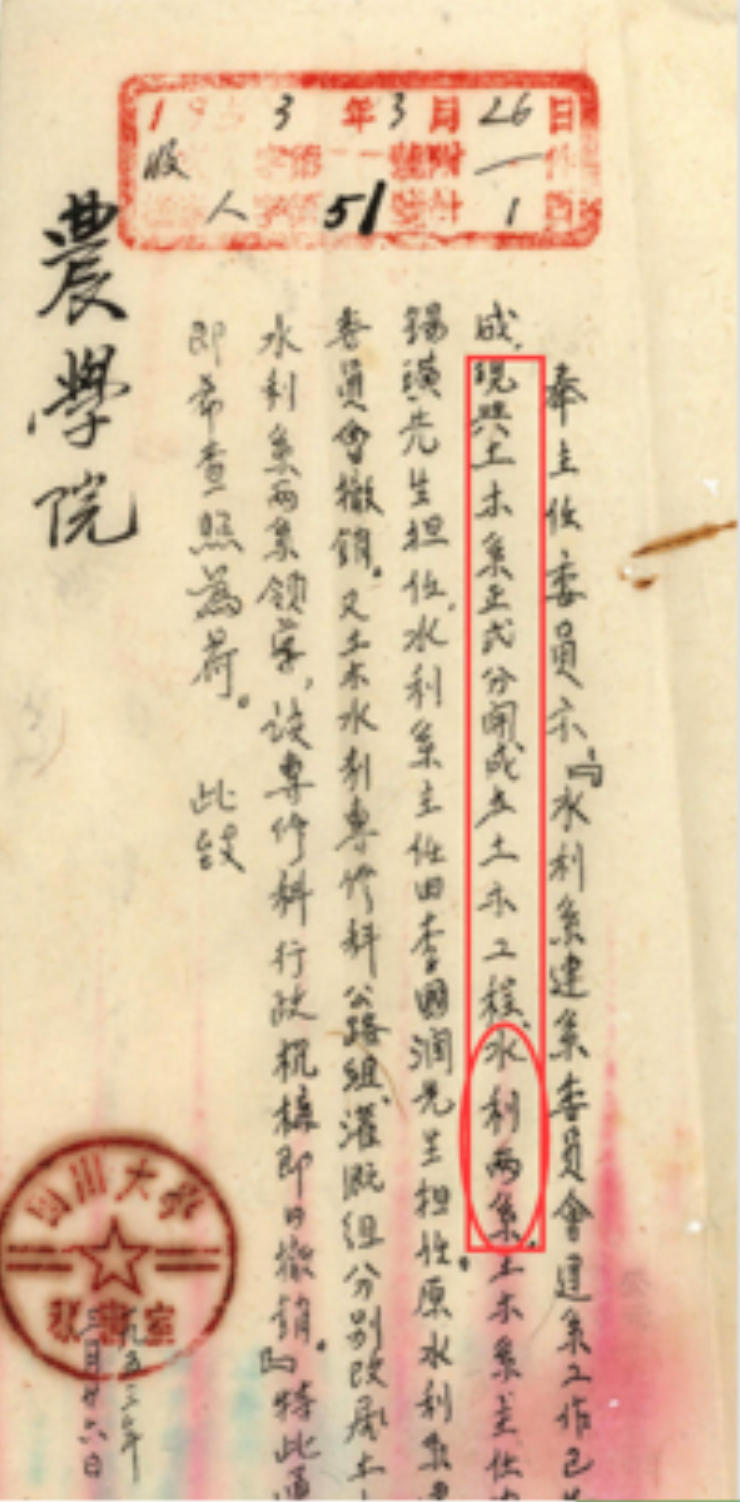 1953年3月26日
收 字第 一 號附 一 件
人 字第 51 號共付 1 頁
奉主任委員示『水利系建系委員會建系工作已
成,現與土木系正式分開成立土木工程、水利兩系。土木系主任
錫璜先生担任,水利系主任由李國潤先生担任。原水利系建
委員會撤銷。又土木水利專修科公路組、灌溉組分別改屬土
水利系兩系領導,該專修科行政機構即日撤銷。』特此通
即希查照為荷。 此致
農學院
四川大學
秘書室
一九五三年
三月廿六日